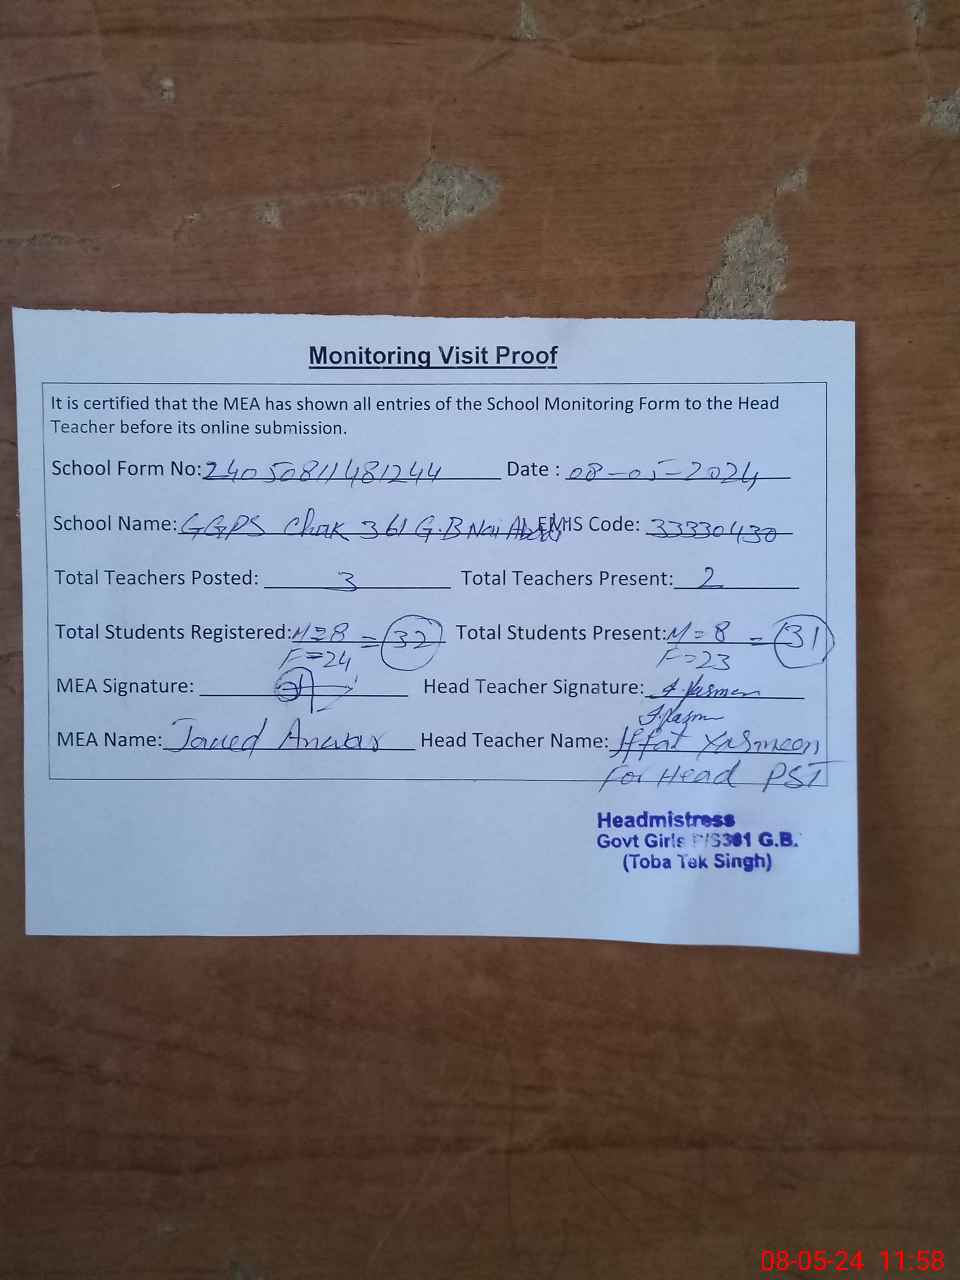 Monitoring Visit Proof
It is certified that the MEA has shown all entries of the School Monitoring Form to the Head
Teacher before its online submission.
School Form No: 2405081148 1244 Date : 08-05-2024
School Name: GGPS Chak 361 G.B Nai Abadi EMIS Code: 33330430
Total Teachers Posted: 3 Total Teachers Present: 2
Total Students Registered: M=8 = 32 Total Students Present: M=8 = 31
F=24 F=23
MEA Signature: Head Teacher Signature: I.Yasmeen
MEA Name: Javed Anwar Head Teacher Name: Iffat Yasmeen
For Head PST
Headmistress
Govt Girls P/S361 G.B.
(Toba Tek Singh)
08-05-24 11:58